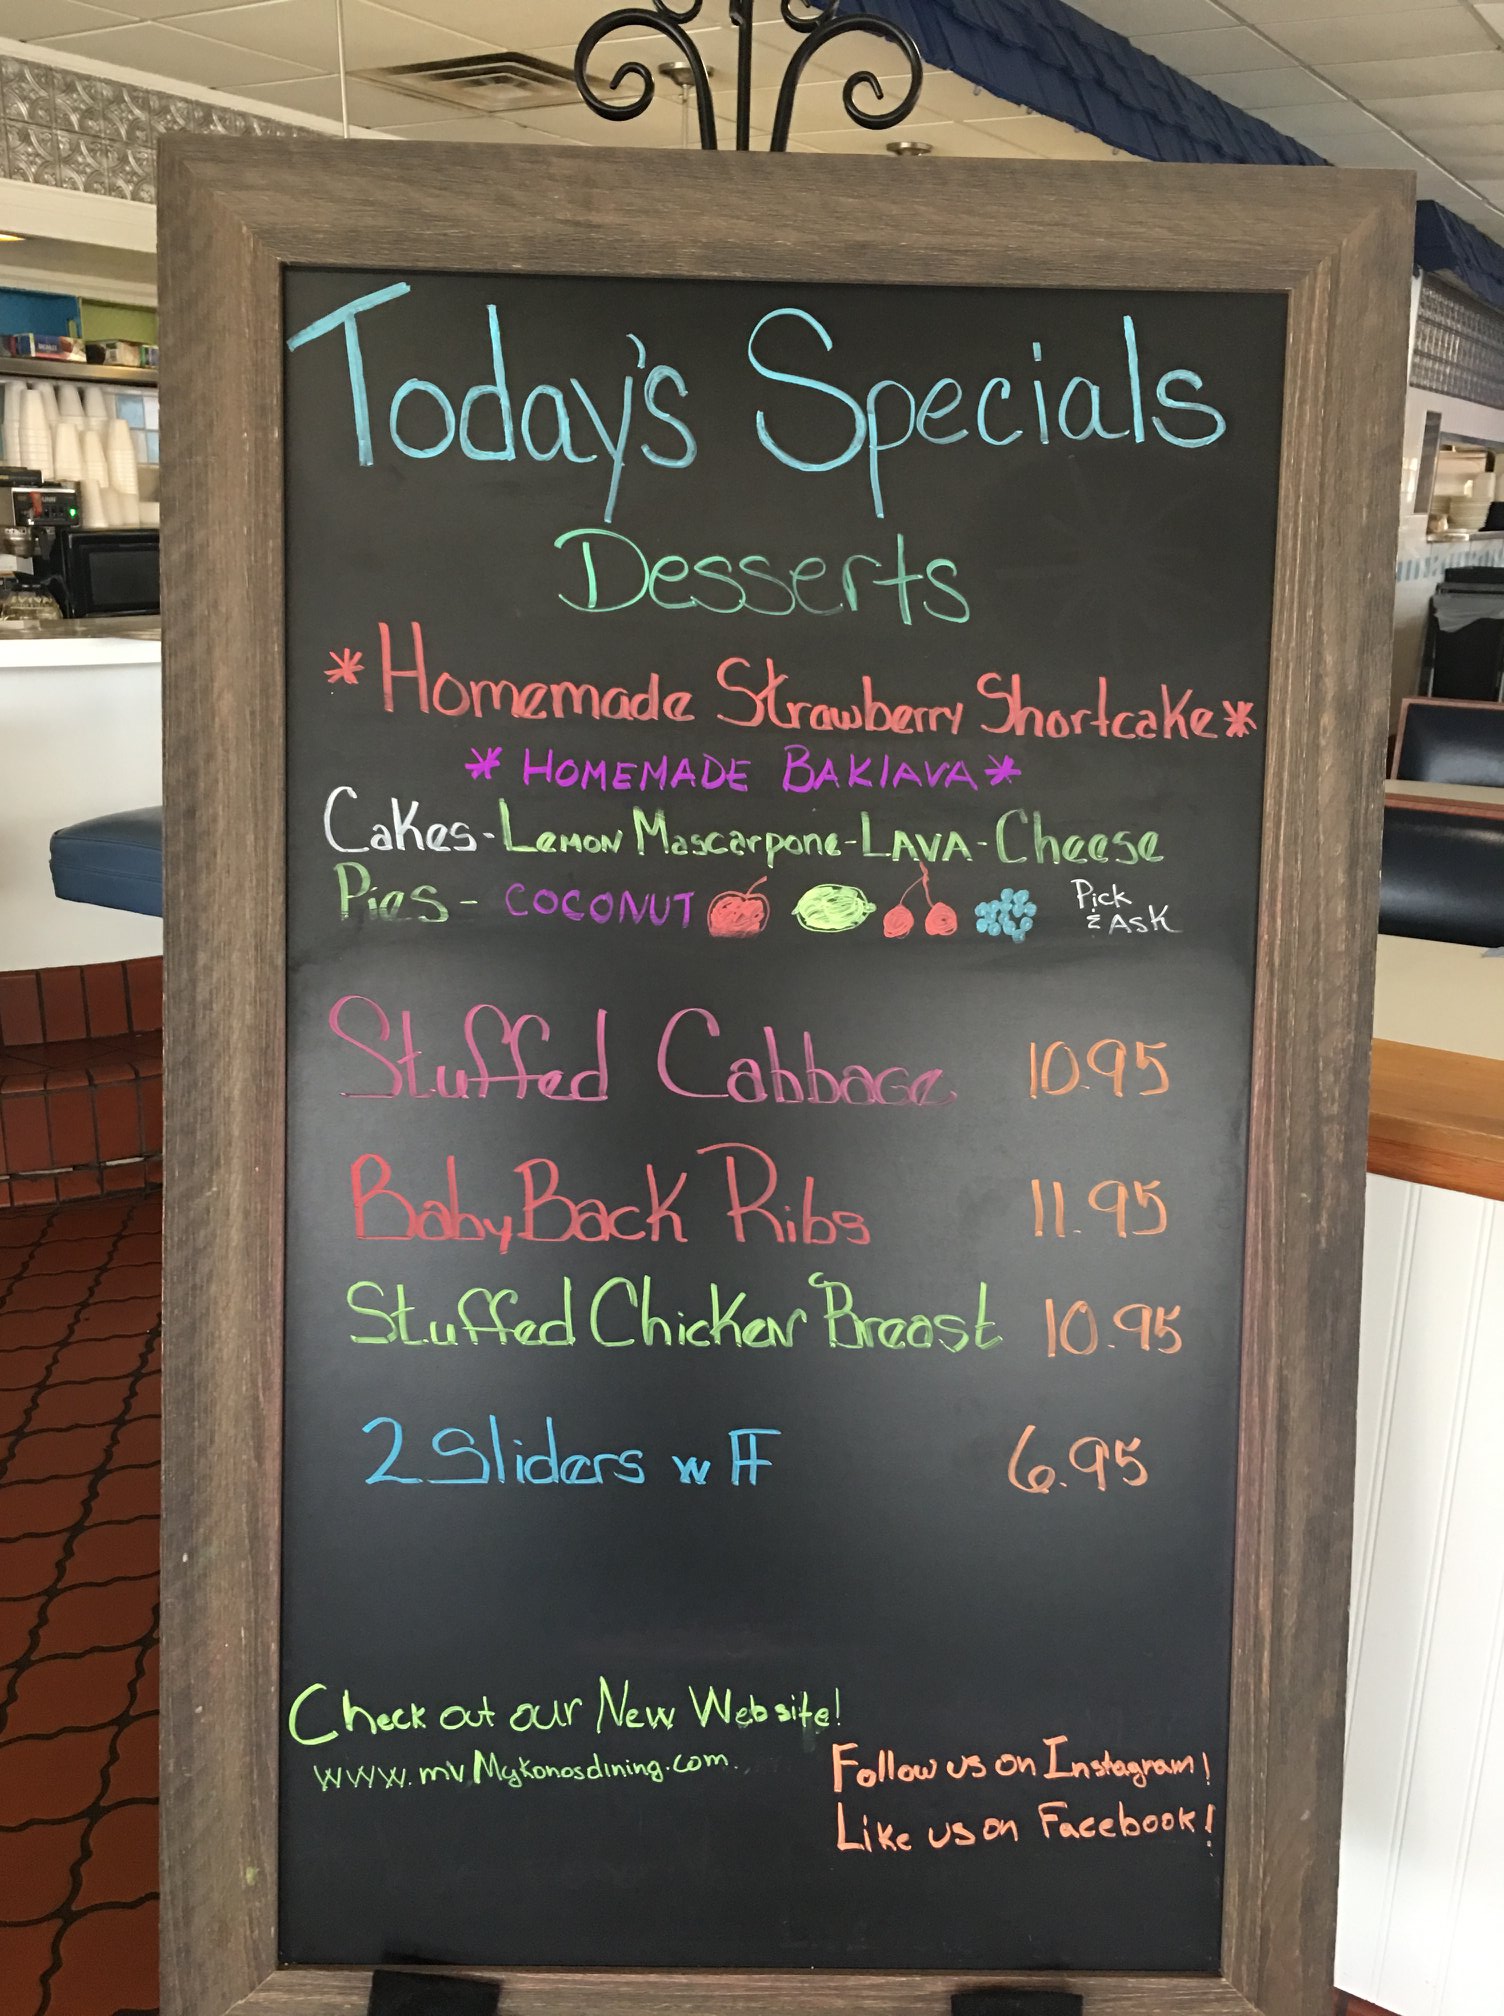 Today's Specials
Desserts
*Homemade Strawberry Shortcake*
*HOMEMADE BAKlAVA*
Cakes-Lemon Mascarpone-LAVA-Cheese
Pies- COCONUT Pick
& Ask
Stuffed Cabbage 10.95
Baby Back Ribs 11.95
Stuffed Chicken Breast 10.95
2 Sliders w FF 6.95
Check out our New Website!
www.mvMykonosdining.com
Follow us on Instagram!
Like us on Facebook!